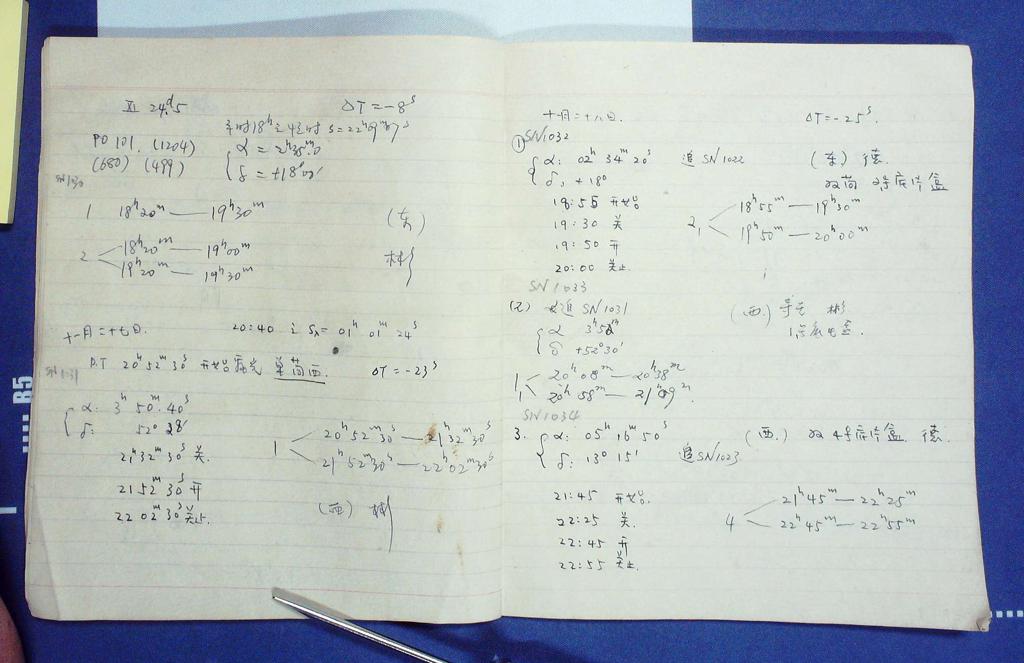 XI 24.ᵈ5 ΔT = -8ˢ
PO 101. (1204)
(680) (499)
α = 2ʰ35ᵐ.0
δ = +18°00′
SN1030
1 18ʰ20ᵐ — 19ʰ30ᵐ (东)
2 18ʰ20ᵐ — 19ʰ00ᵐ
19ʰ20ᵐ — 19ʰ30ᵐ
十一月二十七日. 20:40 之 S = 01ʰ 01ᵐ 24ˢ
SN1031
P.T 20ʰ52ᵐ30ˢ 开始露光 单筒西. ΔT = -23ˢ
α: 3ʰ 50ᵐ.40ˢ
δ: 52° 28′
21ʰ32ᵐ30ˢ 关.
21 52ᵐ 30ˢ 开
22 02ᵐ 30ˢ 关止.
1 20ʰ52ᵐ30ˢ — 21ʰ32ᵐ30ˢ
21ʰ52ᵐ30ˢ — 22ʰ02ᵐ30ˢ
(西) 彬
十一月二十八日. ΔT = -25ˢ.
① SN1032
α: 02ʰ 34ᵐ 20ˢ 追 SN1022 (东) 德.
δ, +18° 双筒 2号底片盒
18:55 开始
19:30 关
19:50 开
20:00 关止.
2, 18ʰ55ᵐ — 19ʰ30ᵐ
19ʰ50ᵐ — 20ʰ00ᵐ
SN1033
(2) 追 SN1031 (西.) 彬
α 3ʰ52ᵐ
δ +52°30′
1, 20ʰ08ᵐ — 20ʰ38ᵐ
20ʰ58ᵐ — 21ʰ09ᵐ
SN1034
3. α: 05ʰ 16ᵐ 50ˢ (西.) 双 4号底片盒 德.
δ: 13° 15′ 追SN1023
21:45 开始.
22:25 关.
22:45 开
22:55 关止.
4 21ʰ45ᵐ — 22ʰ25ᵐ
22ʰ45ᵐ — 22ʰ55ᵐ
B5